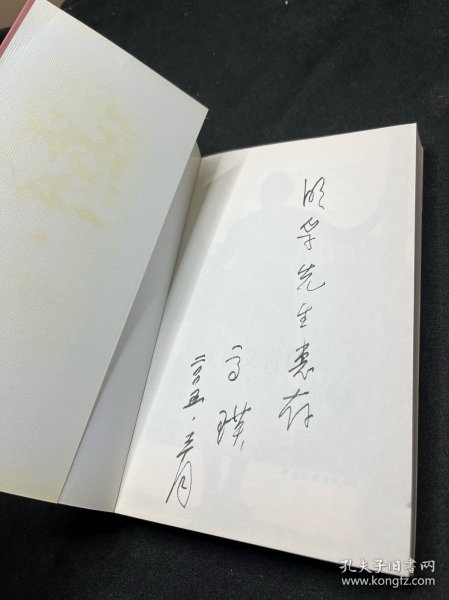 明学先生惠存
高璞
二〇〇五.三月
孔夫子旧书网
www.kongfz.com